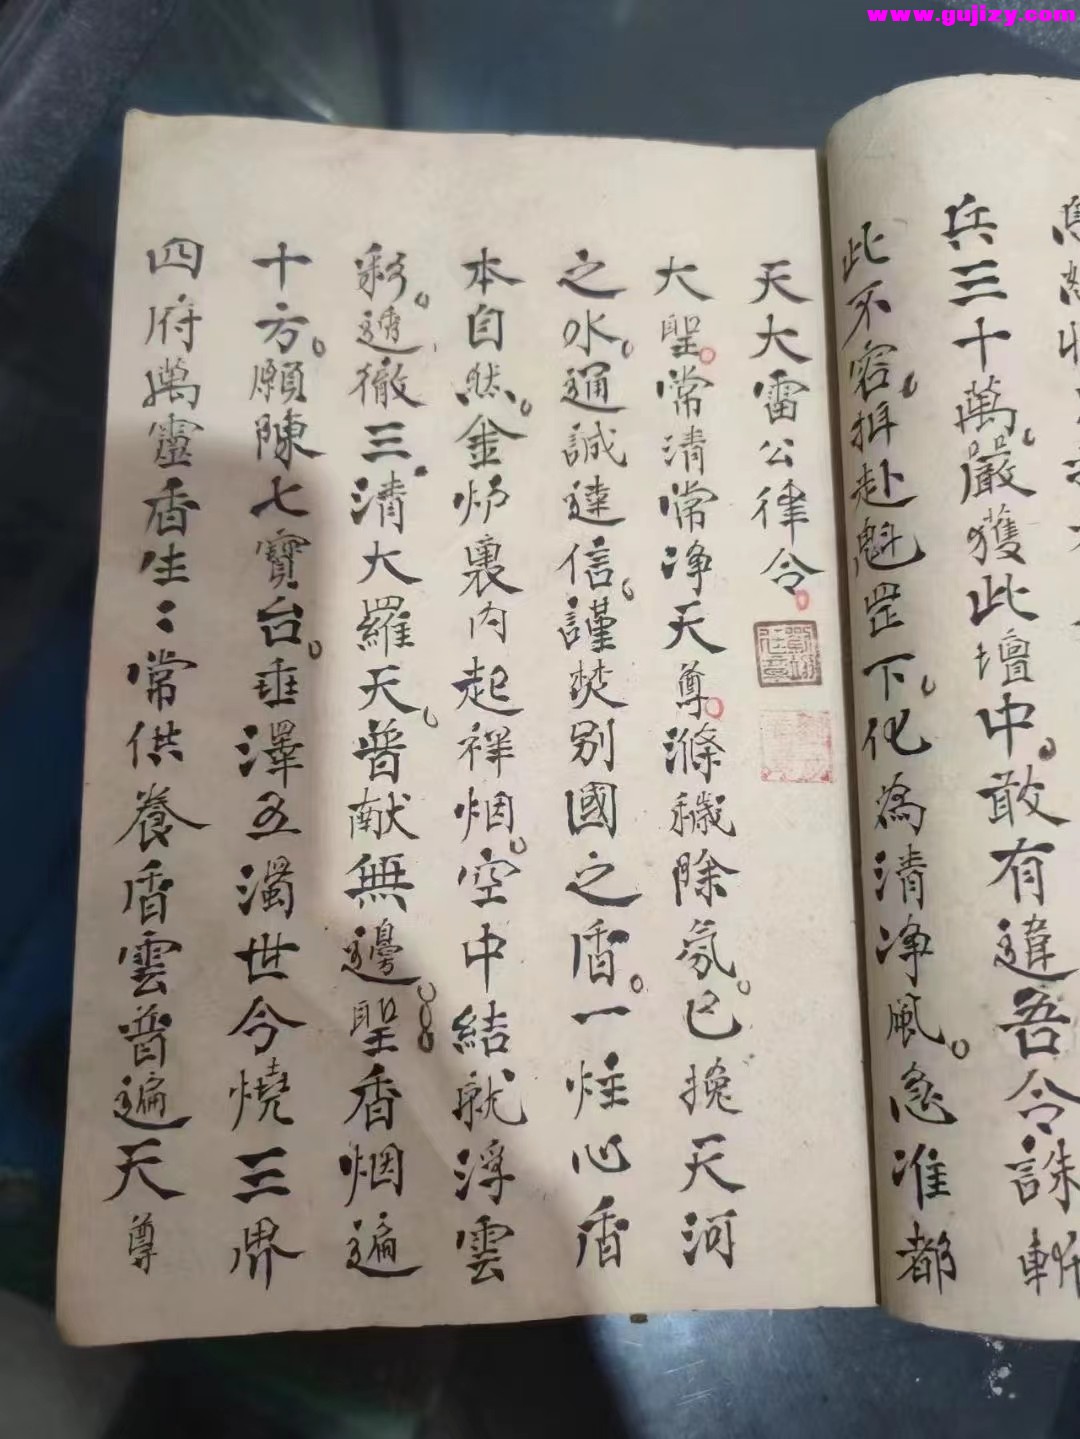 www.gujizy.com
兵三十萬嚴獲此壇中敢有違吾令誅斬
此不容揖赴魁罡下化為清净風急准都
天大雷公律令
大聖常清常净天尊滌穢除氛已挽天河
之水通誠達信謹焚别國之香一炷心香
本自然金炉裏内起祥烟空中結就浮雲
彩透徹三清大羅天普献無邊聖香烟遍
十方願陳七寶台垂澤五濁世今燒三界
四府萬靈香生〻常供養香雲普遍天尊